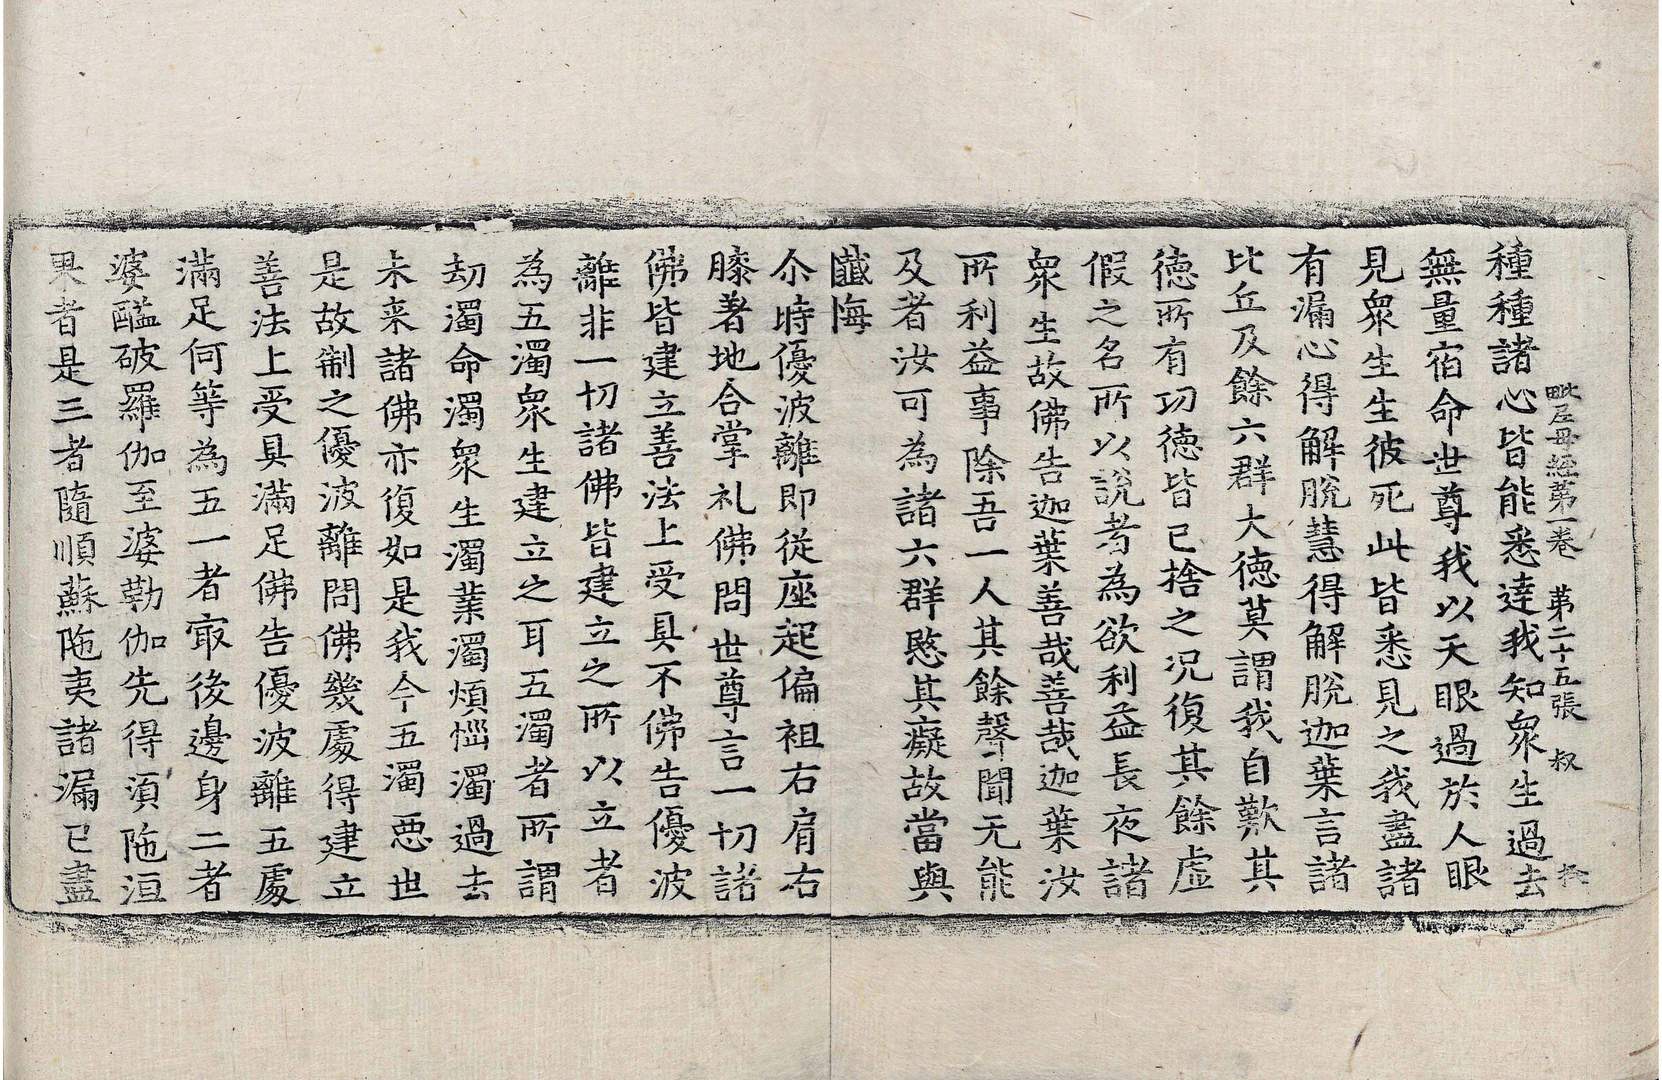 毗尼母經苐一卷 苐二十五張 叔
種種諸心皆能悉逹我知衆生過去
無量宿命世尊我以天眼過於人眼
見衆生生彼死此皆悉見之我盡諸
有漏心得解脫慧得解脫迦葉言諸
比丘及餘六群大德莫謂我自歎其
德所有功德皆已捨之况復其餘虛
假之名所以說者為欲利益長夜諸
衆生故佛告迦葉善哉善哉迦葉汝
所利益事除吾一人其餘聲聞无能
及者汝可為諸六群愍其癡故當與
懺悔
尒時優波離即從座起偏袒右肩右
膝著地合掌礼佛問世尊言一切諸
佛皆建立善法上受具不佛告優波
離非一切諸佛皆建立之所以立者
為五濁衆生建立之耳五濁者所謂
劫濁命濁衆生濁業濁煩惱濁過去
未来諸佛亦復如是我今五濁惡世
是故制之優波離問佛幾處得建立
善法上受具滿足佛告優波離五處
滿足何等為五一者冣後邊身二者
婆醯破羅伽至婆勒伽先得湏陁洹
果者是三者隨順蘇陁夷諸漏已盡